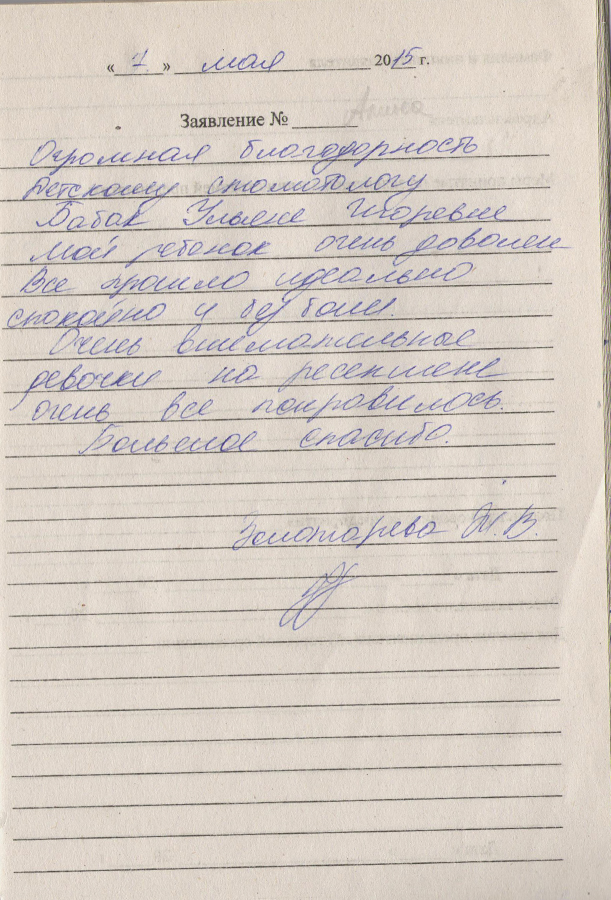 « 7 » мая 2015 г.
Заявление №
Огромная благодарность
детскому стоматологу
Бабак Ульяне Игоревне
Мой ребенок очень доволен
Все прошло идеально
спокойно и без боли.
Очень внимательные
девочки на ресепшене
очень все понравилось.
Большое спасибо.
Золотарева Т.В.